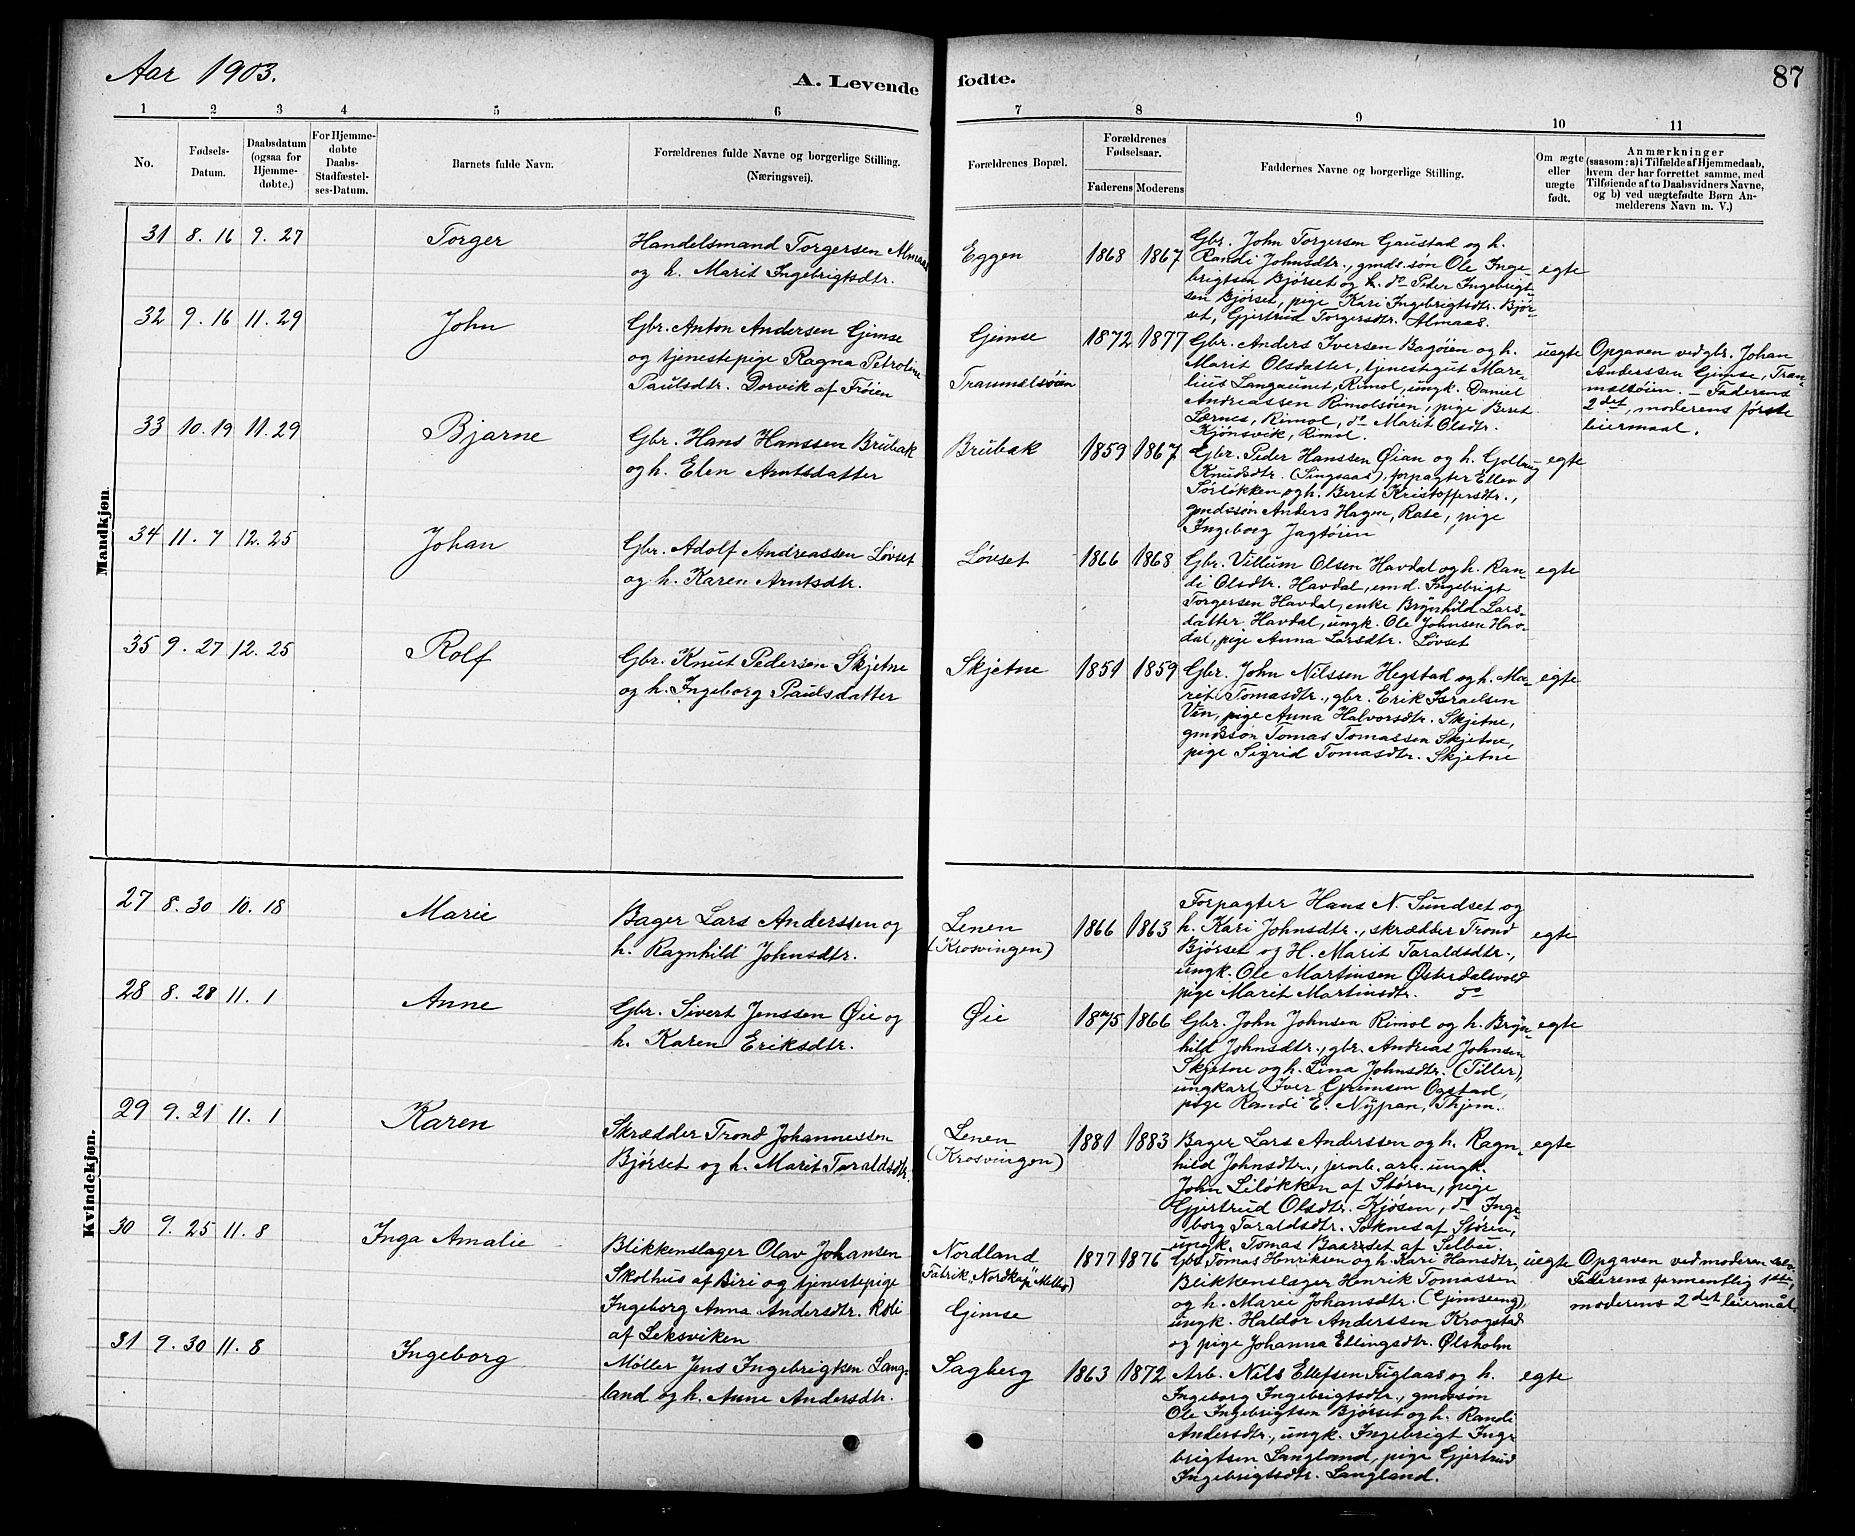 Aar 1903.
A. Levende fødte.
87
1 2 3 4 5 6 7 8 9 10 11
No.
Fødsels-
Datum.
Daabsdatum
(ogsaa for
Hjemme-
døbte.)
For Hjemme-
døbte
Daabs-
Stadfæstel-
ses-Datum.
Barnets fulde Navn.
Forældrenes fulde Navne og borgerlige Stilling.
(Næringsvei).
Forældrenes Bopæl.
Forældrenes
Fødselsaar.
Faderens Moderens
Faddernes Navne og borgerlige Stilling.
Om ægte
eller
uægte
født.
Anmærkninger
(saasom: a) i Tilfælde af Hjemmedaab,
hvem der har forrettet samme, med
Tilføiende af to Daabsvidners Navne,
og b) ved uægtefødte Børn An-
melderens Navn m. V.)
Mandkjøn.
31 8. 16 9. 27 Torger
Handelsmand Torgersen Almaas
og h. Marit Ingebrigtsdtr.
Eggen 1868 1867
Gbr. John Torgersen Gaustad og h.
Randi Johnsdtr., gmds. søn Ole Inge-
brigtsen Bjørset og h. do Peder Ingebrigt-
sen Bjørset, pige Kari Ingebrigtsdtr. Bjør-
set, Gjertrud Torgersdtr. Almaas.
egte
32 9. 16 11. 29 John
Gbr. Anton Andersen Gimse
og tjenestepige Ragna Petroline
Paulsdtr. Dorvik af Frøien
Gimse
Trammelsøien
1872 1877
Gbr. Anders Iversen Bagøien og h.
Marit Olsdatter, tjenestegut Mare-
lius Langaunet, Rimol, ungk. Daniel
Andreassen Rimolsøien, pige Beret
Lernes, Rimol, do Marit Olsdtr.
Kjønsvik, Rimol.
uegte
Opgaven ved gbr. Johan
Anderssen Gimse, Tram-
melsøien. – Faderens
2det, moderens første
leiermaal.
33 10. 19 11. 29 Bjarne
Gbr. Hans Hanssen Brubak
og h. Elen Arntsdatter
Brubak 1859 1867
Gbr. Peder Hanssen Øian og h. Golbrug
Knudsdtr. (Singsaas), forpagter Ellev
Sørløkken og h. Beret Kristoffersdtr.,
gmdssøn Anders Hagen, Rase, pige
Ingeborg Jagtøien
egte
34 11. 7 12. 25 Johan
Gbr. Adolf Andreassen Løvset
og h. Karen Arntsdtr.
Løvset 1866 1868
Gbr. Villum Olsen Havdal og h. Ran-
di Olsdtr. Havdal, emd. Ingebrigt
Torgersen Havdal, enke Brynhild Lars-
datter Havdal, ungk. Ole Johnsen Hav-
dal, pige Anna Larsdtr. Løvset
egte
35 9. 27 12. 25 Rolf
Gbr. Knut Pedersen Skjetne
og h. Ingeborg Paulsdatter
Skjetne 1851 1859
Gbr. John Nilssen Hegstad og h. Ma-
rit Tomasdtr., gbr. Erik Israelsen
Vin, pige Anna Halvorsdtr. Skjetne,
gmdssøn Tomas Tomassen Skjetne,
pige Sigrid Tomasdtr. Skjetne
egte
Kvindekjøn.
27 8. 30 10. 18 Marie
Bager Lars Anderssen og
h. Ragnhild Johnsdtr.
Lenen
(Krosvingen)
1866 1863
Forpagter Hans N. Sundset og
h. Kari Johnsdtr., skrædder Trond
Bjørset og H. Marit Taraldsdtr.,
ungk. Ole Martinsen Østerdalsvold
pige Marit Martinsdtr. do
egte
28 8. 28 11. 1 Anne
Gbr. Sivert Jenssen Øie og
h. Karen Eriksdtr.
Øie 1875 1866
Gbr. John Johnsen Rimol og h. Bryn-
hild Johnsdtr., gbr. Andreas Johnsen
Skjetne og h. Lina Johnsdtr. (Tiller),
ungkarl Iver Grimsen Ogstad,
pige Randi E. Nypan, Thjem.
egte
29 9. 21 11. 1 Karen
Skrædder Trond Johannessen
Bjørset og h. Marit Taraldsdtr.
Lenen
(Krosvingen)
1881 1883
Bager Lars Anderssen og h. Ragn-
hild Johnsdtr., jernb. arb. ungk.
John Liløkken af Støren, pige
Gjertrud Olsdtr. Kjøsen, do Inge-
borg Taraldsdtr. Soknes af Støren,
ungk. Tomas Baarset af Selbu
egte
30 9. 25 11. 8 Inga Amalie
Blikkenslager Olav Johansen
Skolhus af Biri og tjenestepige
Ingeborg Anna Andersdtr. Roli
af Leksviken
Nordland
Fabrik "Nordkap" Melbo)
Gimse
1877 1876
Gbr. Tomas Henriksen og h. Kari Hansdtr,
Blikkenslager Henrik Tomassen
og h. Marie Johansdtr. (Gimseeng),
ungk. Haldor Anderssen Krogstad
og pige Johanna Ellingsdtr. Ølsholm
uegte
Opgaven ved moderen selv.
Faderens formentlig 1ste,
moderens 2det leiermål.
31 9. 30 11. 8 Ingeborg
Møller Jens Ingebrigtsen Lang-
land og h. Anne Andersdtr.
Sagberg 1863 1872
Arb. Nils Ellefsen Fuglaas og h.
Ingeborg Ingebrigtsdtr., gmdssøn
Ole Ingebrigtsen Bjørset og h. Randi
Andersdtr., ungk. Ingebrigt Inge-
brigtsen Langland, pige Gjertrud
Ingebrigtsdtr. Langland.
egte